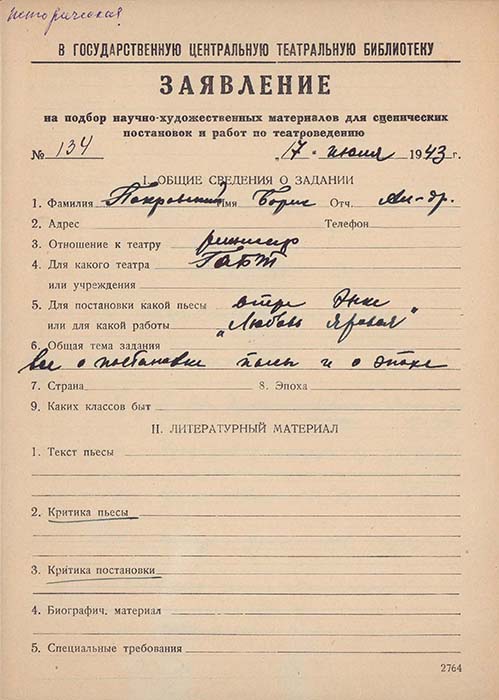 историческая
В ГОСУДАРСТВЕННУЮ ЦЕНТРАЛЬНУЮ ТЕАТРАЛЬНУЮ БИБЛИОТЕКУ
ЗАЯВЛЕНИЕ
на подбор научно-художественных материалов для сценических
постановок и работ по театроведению
№ 134 „17“ июля 1943 г.
I. ОБЩИЕ СВЕДЕНИЯ О ЗАДАНИИ
1. Фамилия Покровский Имя Борис Отч. Ал-др.
2. Адрес Телефон
3. Отношение к театру режиссер
4. Для какого театра ГАБТ
или учреждения
5. Для постановки какой пьесы опере Энке
или для какой работы „Любовь Яровая“
6. Общая тема задания
все о постановке пьесы и о эпохе
7. Страна 8. Эпоха
9. Каких классов быт
II. ЛИТЕРАТУРНЫЙ МАТЕРИАЛ
1. Текст пьесы
2. Критика пьесы
3. Критика постановки
4. Биографич. материал
5. Специальные требования
2764